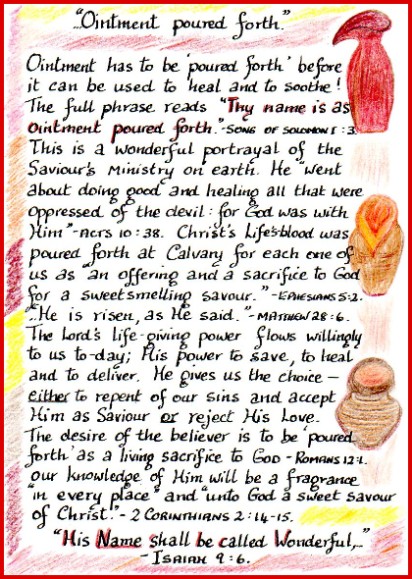 "..Ointment poured forth."
Ointment has to be 'poured forth' before
it can be used to heal and to soothe!
The full phrase reads "Thy name is as
ointment poured forth."-SONG OF SOLOMON 1:3.
This is a wonderful portrayal of the
Saviour's ministry on earth. He "went
about doing good and healing all that were
oppressed of the devil: for God was with
Him"-ACTS 10:38. Christ's Life's-blood was
poured forth at Calvary for each one of
us as "an offering and a sacrifice to God
for a sweetsmelling savour." -EPHESIANS 5:2.
"..He is risen, as He said."-MATTHEW 28:6.
The Lord's life-giving power flows willingly
to us to-day; His power to save, to heal
and to deliver. He gives us the choice –
either to repent of our sins and accept
Him as Saviour or reject His Love.
The desire of the believer is to be 'poured
forth' as a living sacrifice to GOD - ROMANS 12:1.
Our knowledge of Him will be a fragrance
"in every place" and "unto God a sweet savour
of Christ." - 2 CORINTHIANS 2:14-15.
"His Name shall be called Wonderful,.."
- ISAIAH 9:6.